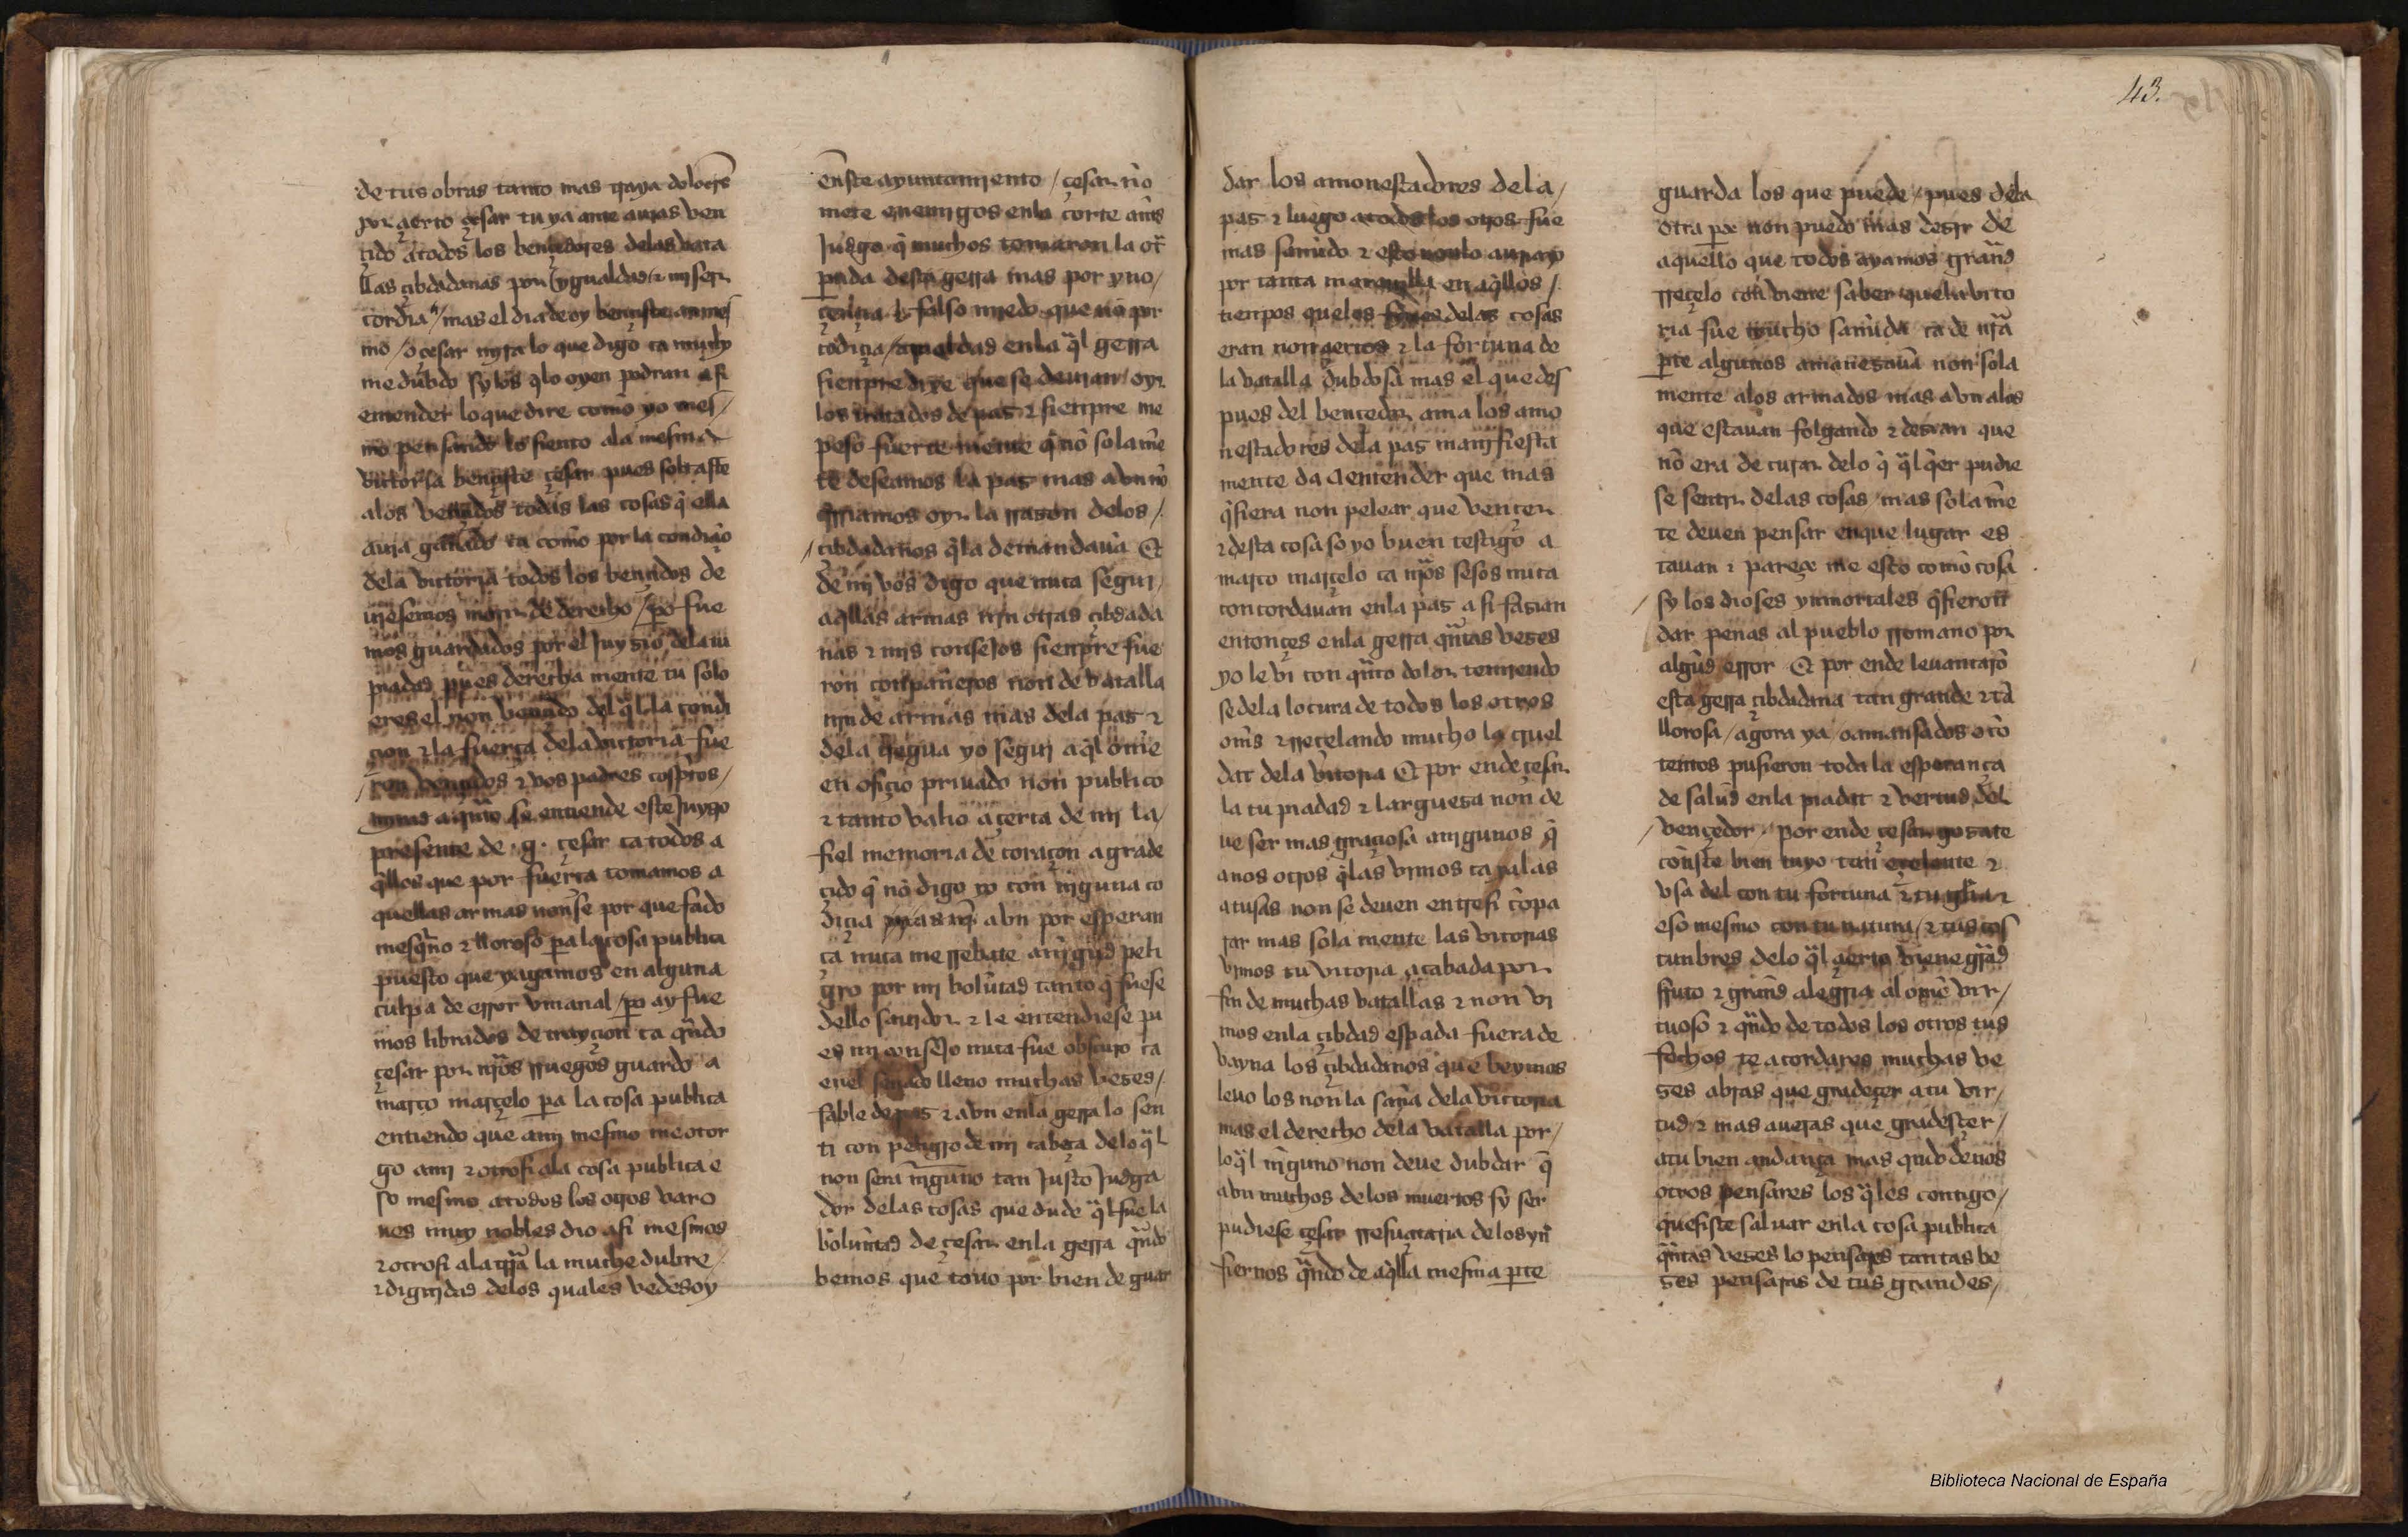 de tus obras tanto mas traya dolores
por çierto çesar tu ya ante auias ven
çido a todos los bençedores delas bata
llas çibdadanas por ygualdad τ miseri
cordia / mas el dia de oy benciste a ti mes
mo / o çesar mira lo que digo ca mucho
me dubdo sy los q̃lo oyen podran asi
entender lo que dire como yo mes /
mo pensando lo siento ala mesma
victoria bençiste çesar pues soltaste
alos vençidos todas las cosas q̃ ella
auia ganado ca como por la condiçio
dela victoria todos los bençidos de
uiesemos morir de derecho / po fue
mos guardados por el juyzio dela tu
piadad pues derecha mente tu solo
eres el non bençido del q̃l la condi
çion τ la fuerça dela victoria fue
ron vençidos τ vos padres cosptos /
mirad a quãto se entiende este juyzo
presente de .g. çesar ca todos a
q̃llos que por fuerça tomamos a
quellas armas non se por que fado
mesq̃no τ lloroso pa la cosa publica
puesto que yagamos en alguna
culpa de error vmanal / po ay fue
mos librados de trayçion ca qñdo
çesar por nr̃os rruegos guardo a
março marçelo pa la cosa publica
entiendo que a mj mesmo me otor
go a mj τ otrosi ala cosa publica e
so mesmo a todos los otros varo
nes muy nobles dio asi mesmos
τ otrosi ala tr̃ra la muchedubre /
τ dignidad delos quales vedes oy
en este ayuntamiento / çesar nõ
mete enemigos enla corte ants
judgo q̃ muchos tomaron la ot̃
pada desta gerra mas por yno /
rençia τ falso miedo que nõ por
codiçia / τ maldad enla q̃l gerra
sienpre dixe que se deuian oyr
los tratados de paz τ sienpre me
peso fuerte mente q̃ nõ solam̃e
te deseamos la paz mas avn nõ
q̃riamos oyr la rrazon delos /
çibdadanos q̃ la demandauã Et
de mj vos digo que nũca segui /
aq̃llas armas njn otras çibdada
nas τ mjs consejos sienpre fue
ron conpañeros non de batalla
njn de armas mas dela paz τ
dela tregua yo segui aq̃l om̃e
en ofiçio priuado non publico
τ tanto valio açerca de mj la /
fiel memoria de coraçon agrade
çido q̃ nõ digo yo con njguna co
diçia mas nj avn por esperan
ça nũca me rrebate a nĩgũd peli
gro por mj bolũtad tanto q̃ fuese
dello sabidor τ le entendiese pu
es mj consejo nũca fue obscuro ca
enel senado lleno muchas vezes /
fable de paz τ avn enla gerra lo sen
ti con peligro de mj cabeça delo q̃l
non sera nĩguno tan justo judga
dor delas cosas que dude q̃l fue la
bolũntad de çesar enla gerra qñdo
bemos que touo por bien de guar
dar los amonestadores dela /
paz τ luego a todos los otros fue
mas sañudo τ esto non lo auria yo
por tanta marauilla en aq̃llos /
tienpos que los fynes delas cosas
eran non çiertos τ la fortuna de
la batalla dubdosa mas el que des
pues del bençedor ama los amo
nestadores dela paz manjfiesta
mente da a entender que mas
q̃siera non pelear que vençer
τ desta cosa so yo buen testigo a
março marçelo ca nr̃os sesos nũca
concordauan enla paz asi fazian
entonçes enla gerra qñtas vezes
yo le vi con qñto dolor temiendo
se dela locura de todos los otros
om̃s τ rreçelando mucho la cruel
dat dela vitoria Et por ende çesar
la tu piadad τ largueza non de
ue ser mas graçiosa a njgunos q̃
a nos otros q̃ las vimos ca ya las
causas non se deuen entresi cõpa
rar mas sola mente las vitorias
vimos tu vitoria acabada por
fin de muchas batallas τ non vi
mos enla çibdad espada fuera de
vayna los çibdadanos que beymos
leuo los non la saña dela victoria
mas el derecho dela batalla por /
lo q̃l nĩguno non deue dubdar q̃
avn muchos de los muertos sy ser
pudiese çesar rresuçitaria de los yn
fiernos qñdo de aq̃lla mesma pte
guarda los que puede / pues dela
otra pte non puedo mas dezir de
aquello que todos ayamos grand
rreçelo conviene saber que la vito
ria fue mucho sañuda ca de nr̃a
pte algunos amenazauã non sola
mente alos armados mas avn alos
que estauan folgando τ dezian que
nõ era de curar delo q̃ q̃lq̃er pudie
se sentir delas cosas / mas solam̃e
te deuen pensar en que lugar es
tauan τ pareçe me esto como cosa
sy los dioses ynmortales q̃sieron
dar penas al pueblo rromano por
algũd error Et por ende leuantarõ
esta gerra çibdadana tan grande τ tã
llorosa / agora ya / o amansados o cõ
tentos pusieron toda la esperança
de salud enla piadat τ vertud del
vençedor / por ende çesar gozate
coneste bien tuyo tan exelente τ
vsa del con tu fortuna τ tu gl̃ia τ
eso mesmo con tu natura / τ tus cos
tunbres delo q̃l çierto viene grãd
fruto τ grand alegria al om̃e vir /
tuoso τ qñdo de todos los otros tus
fechos te acordares muchas ve
zes abras que gradeçer a tu vir /
tud τ mas aueras que gradesçer /
a tu bien andança mas qñdo de nos
otros pensares los q̃les contigo /
quesiste saluar enla cosa publica
qñtas vezes lo pensares tantas be
zes pensaras de tus grandes /
43.
Biblioteca Nacional de España